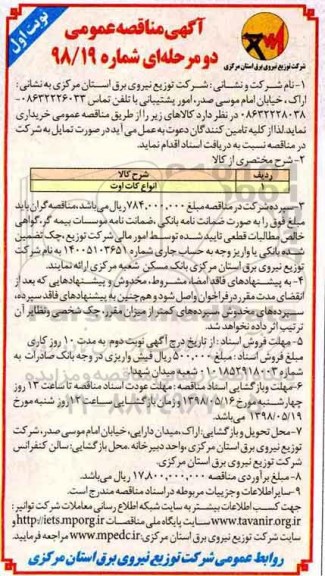 نوبت اول
آگهی مناقصه عمومی
دو مرحله‌ای شماره ۹۸/۱۹
شرکت توزیع نیروی برق استان مرکزی
۱- نام شرکت و نشانی: شرکت توزیع نیروی برق استان مرکزی به نشانی:
اراک، خیابان امام موسی صدر، امور پشتیبانی با تلفن تماس ۰۸۶۳۲۲۲۶۰۳۳-
۰۸۶۳۲۲۲۸۰۳۸ در نظر دارد کالاهای زیر را از طریق مناقصه عمومی خریداری
نماید. لذا از کلیه تامین کنندگان دعوت به عمل می آید در صورت تمایل به شرکت
در مناقصه نسبت به دریافت اسناد اقدام نمایند.
۲- شرح مختصری از کالا
ردیف شرح کالا
۱ انواع کات اوت
۳- سپرده شرکت در مناقصه مبلغ ۷۸۴,۰۰۰,۰۰۰ ریال می‌باشد، مناقصه گران باید
مبلغ فوق را به صورت ضمانت نامه بانکی، ضمانت نامه موسسات بیمه گر، گواهی
خالص مطالبات قطعی تایید شده توسط امور مالی شرکت توزیع، چک تضمین
شده بانکی یا واریز وجه به حساب جاری شماره ۱۴۰۰۵۱۰۳۶۵۱ به نام شرکت
توزیع نیروی برق استان مرکزی بانک مسکن شعبه مرکزی ارائه نمایند.
۴- به پیشنهادهای فاقد امضا، مشروط، مخدوش و پیشنهادهایی که بعد از
انقضای مدت مقرر در فراخوان واصل شود و هم‌چنین به پیشنهادهای فاقد سپرده،
سپرده‌های مخدوش، سپرده‌های کمتر از میزان مقرر، چک شخصی و نظایر آن
ترتیب اثر داده نخواهد شد.
۵- مهلت فروش اسناد: از تاریخ درج آگهی نوبت دوم، به مدت ۱۰ روز کاری
مبلغ فروش اسناد: مبلغ ۵۰۰,۰۰۰ ریال فیش واریزی در وجه بانک صادرات به
شماره ۰۱۰۱۸۵۲۹۱۸۰۰۳ شعبه میدان شهدا.
۶- مهلت و بازگشایی اسناد مناقصه: مهلت عودت اسناد مناقصه تا ساعت ۱۳ روز
چهارشنبه مورخ ۱۳۹۸/۰۵/۱۶ و زمان بازگشایی ساعت ۱۲ روز شنبه مورخ
۱۳۹۸/۰۵/۱۹ می‌باشد.
۷- محل تحویل و بازگشایی: اراک، میدان دارایی، خیابان امام موسی صدر، شرکت
توزیع نیروی برق استان مرکزی واحد دبیرخانه. محل بازگشایی: سالن کنفرانس
شرکت توزیع نیروی برق استان مرکزی.
۸- مبلغ برآوردی مناقصه ۱۷,۸۰۰,۰۰۰,۰۰۰ ریال می‌باشد.
۹- سایر اطلاعات و جزییات مربوطه در اسناد مناقصه مندرج است.
جهت کسب اطلاعات بیشتر به سایت شبکه اطلاع رسانی معاملات شرکت توانیر:
www.tavanir.org.ir سایت پایگاه ملی مناقصات http://iets.mporg.ir و
www.mpedc.ir مراجعه فرمایید.
روابط عمومی شرکت توزیع نیروی برق استان مرکزی